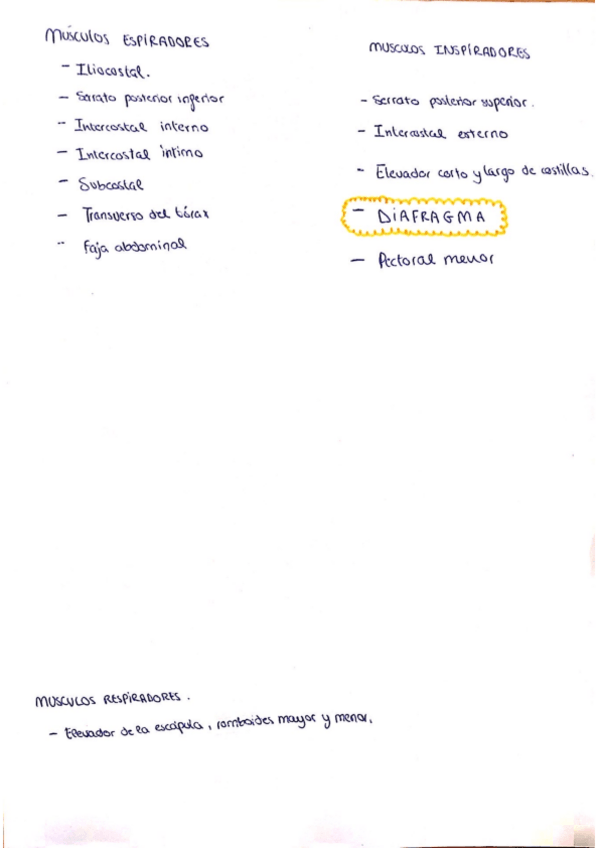 MÚSCULOS ESPIRADORES
- Iliocostal.
- Serato posterior inferior
- Intercostal interno
- Intercostal íntimo
- Subcostal
- Transverso del tórax
- Faja abdominal
MUSCULOS INSPIRADORES
- Serrato posterior superior.
- Intercostal externo
- Elevador corto y largo de costillas.
- DIAFRAGMA
- Pectoral menor
MUSCULOS RESPIRADORES.
- Elevador de la escápula, romboides mayor y menor.